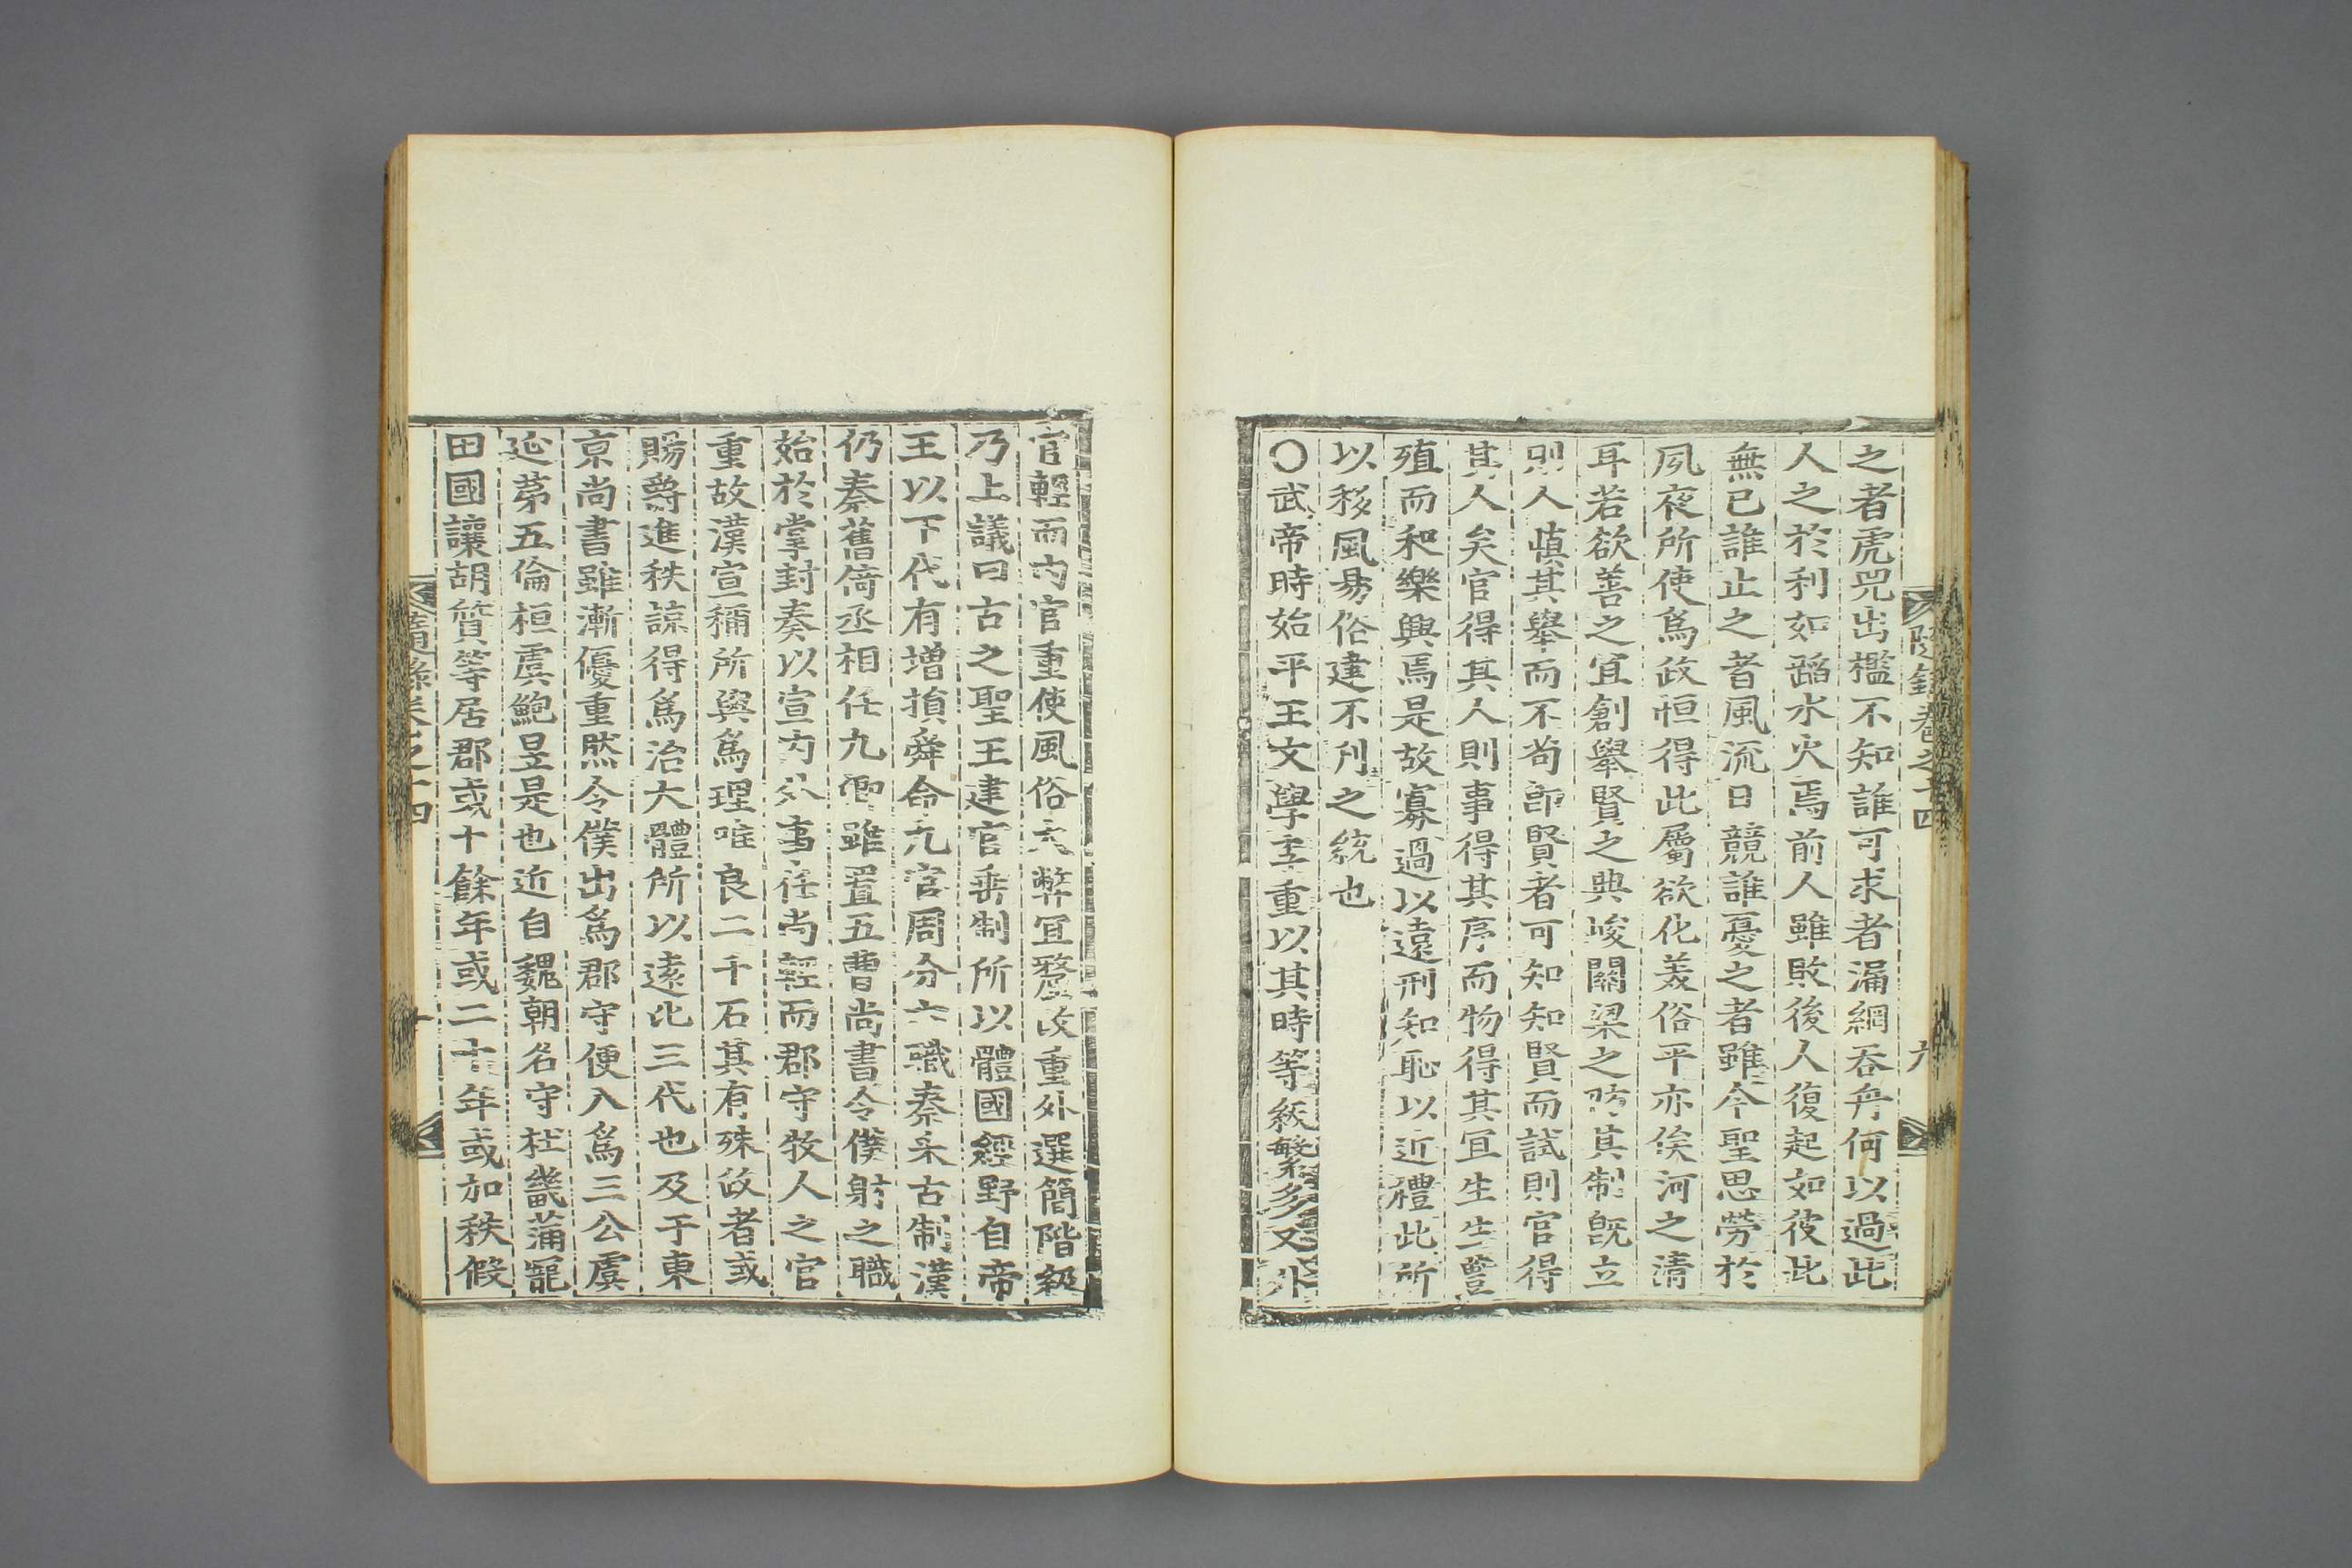 隨錄卷之十四
六
之者虎兕出檻不知誰可求者漏網吞舟何以過此
人之於利如蹈水火焉前人雖敗後人復起如彼此
無已誰止之者風流日競誰憂之者雖今聖思勞於
夙夜所使爲政恒得此屬欲化美俗平亦俟河之清
耳若欲善之宜創擧賢之典峻關梁之防其制旣立
則人愼其擧而不苟卽賢者可知知賢而試則官得
其人矣官得其人則事得其序而物得其宜生生豐
殖而和樂興焉是故寡過以遠刑知恥以近禮此所
以移風易俗建不刋之統也
○武帝時始平王文學李重以其時等級繁多又外
官輕而內官重使風俗大弊宜釐改重外選簡階級
乃上議曰古之聖王建官垂制所以體國經野自帝
王以下代有增損舜命九官周分六職秦采古制漢
仍秦舊倚丞相任九卿雖置五曹尚書令僕射之職
始於掌封奏以宣內外事任尚輕而郡守牧人之官
重故漢宣稱所與爲理唯良二千石其有殊政者或
賜爵進秩諒得爲治大體所以遠比三代也及于東
京尚書雖漸優重然令僕出爲郡守便入爲三公虞
延第五倫桓虞鮑昱是也近自魏朝名守杜畿蒲寵
田國讓胡質等居郡或十餘年或二十年或加秩假
隨錄卷之十四